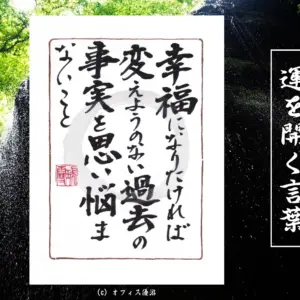 幸福になりたければ
変えようのない過去の
事実を思い悩ま
ないこと
運を開く言葉
(C) オフィス湧沼